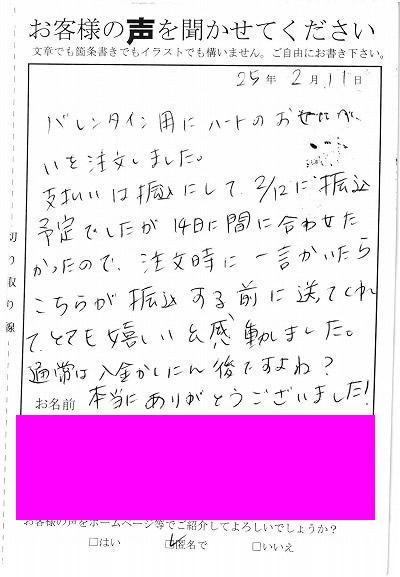 お客様の声を聞かせてください
文章でも箇条書きでもイラストでも構いません。ご自由にお書き下さい。
25年 2月 11日
バレンタイン用にハートのおせんべ
いを注文しました。
支払いは振込にして、2/12に振込
予定でしたが14日に間に合わせた
かったので、注文時に一言かいたら
こちらが振込する前に送ってくれ
て、とても嬉しい&感動しました。
通常は入金かくにん後ですよね?
お名前 本当にありがとうございました!
切り取り線
お客様の声をホームページ等でご紹介してよろしいでしょうか?
□はい ☑匿名で □いいえ